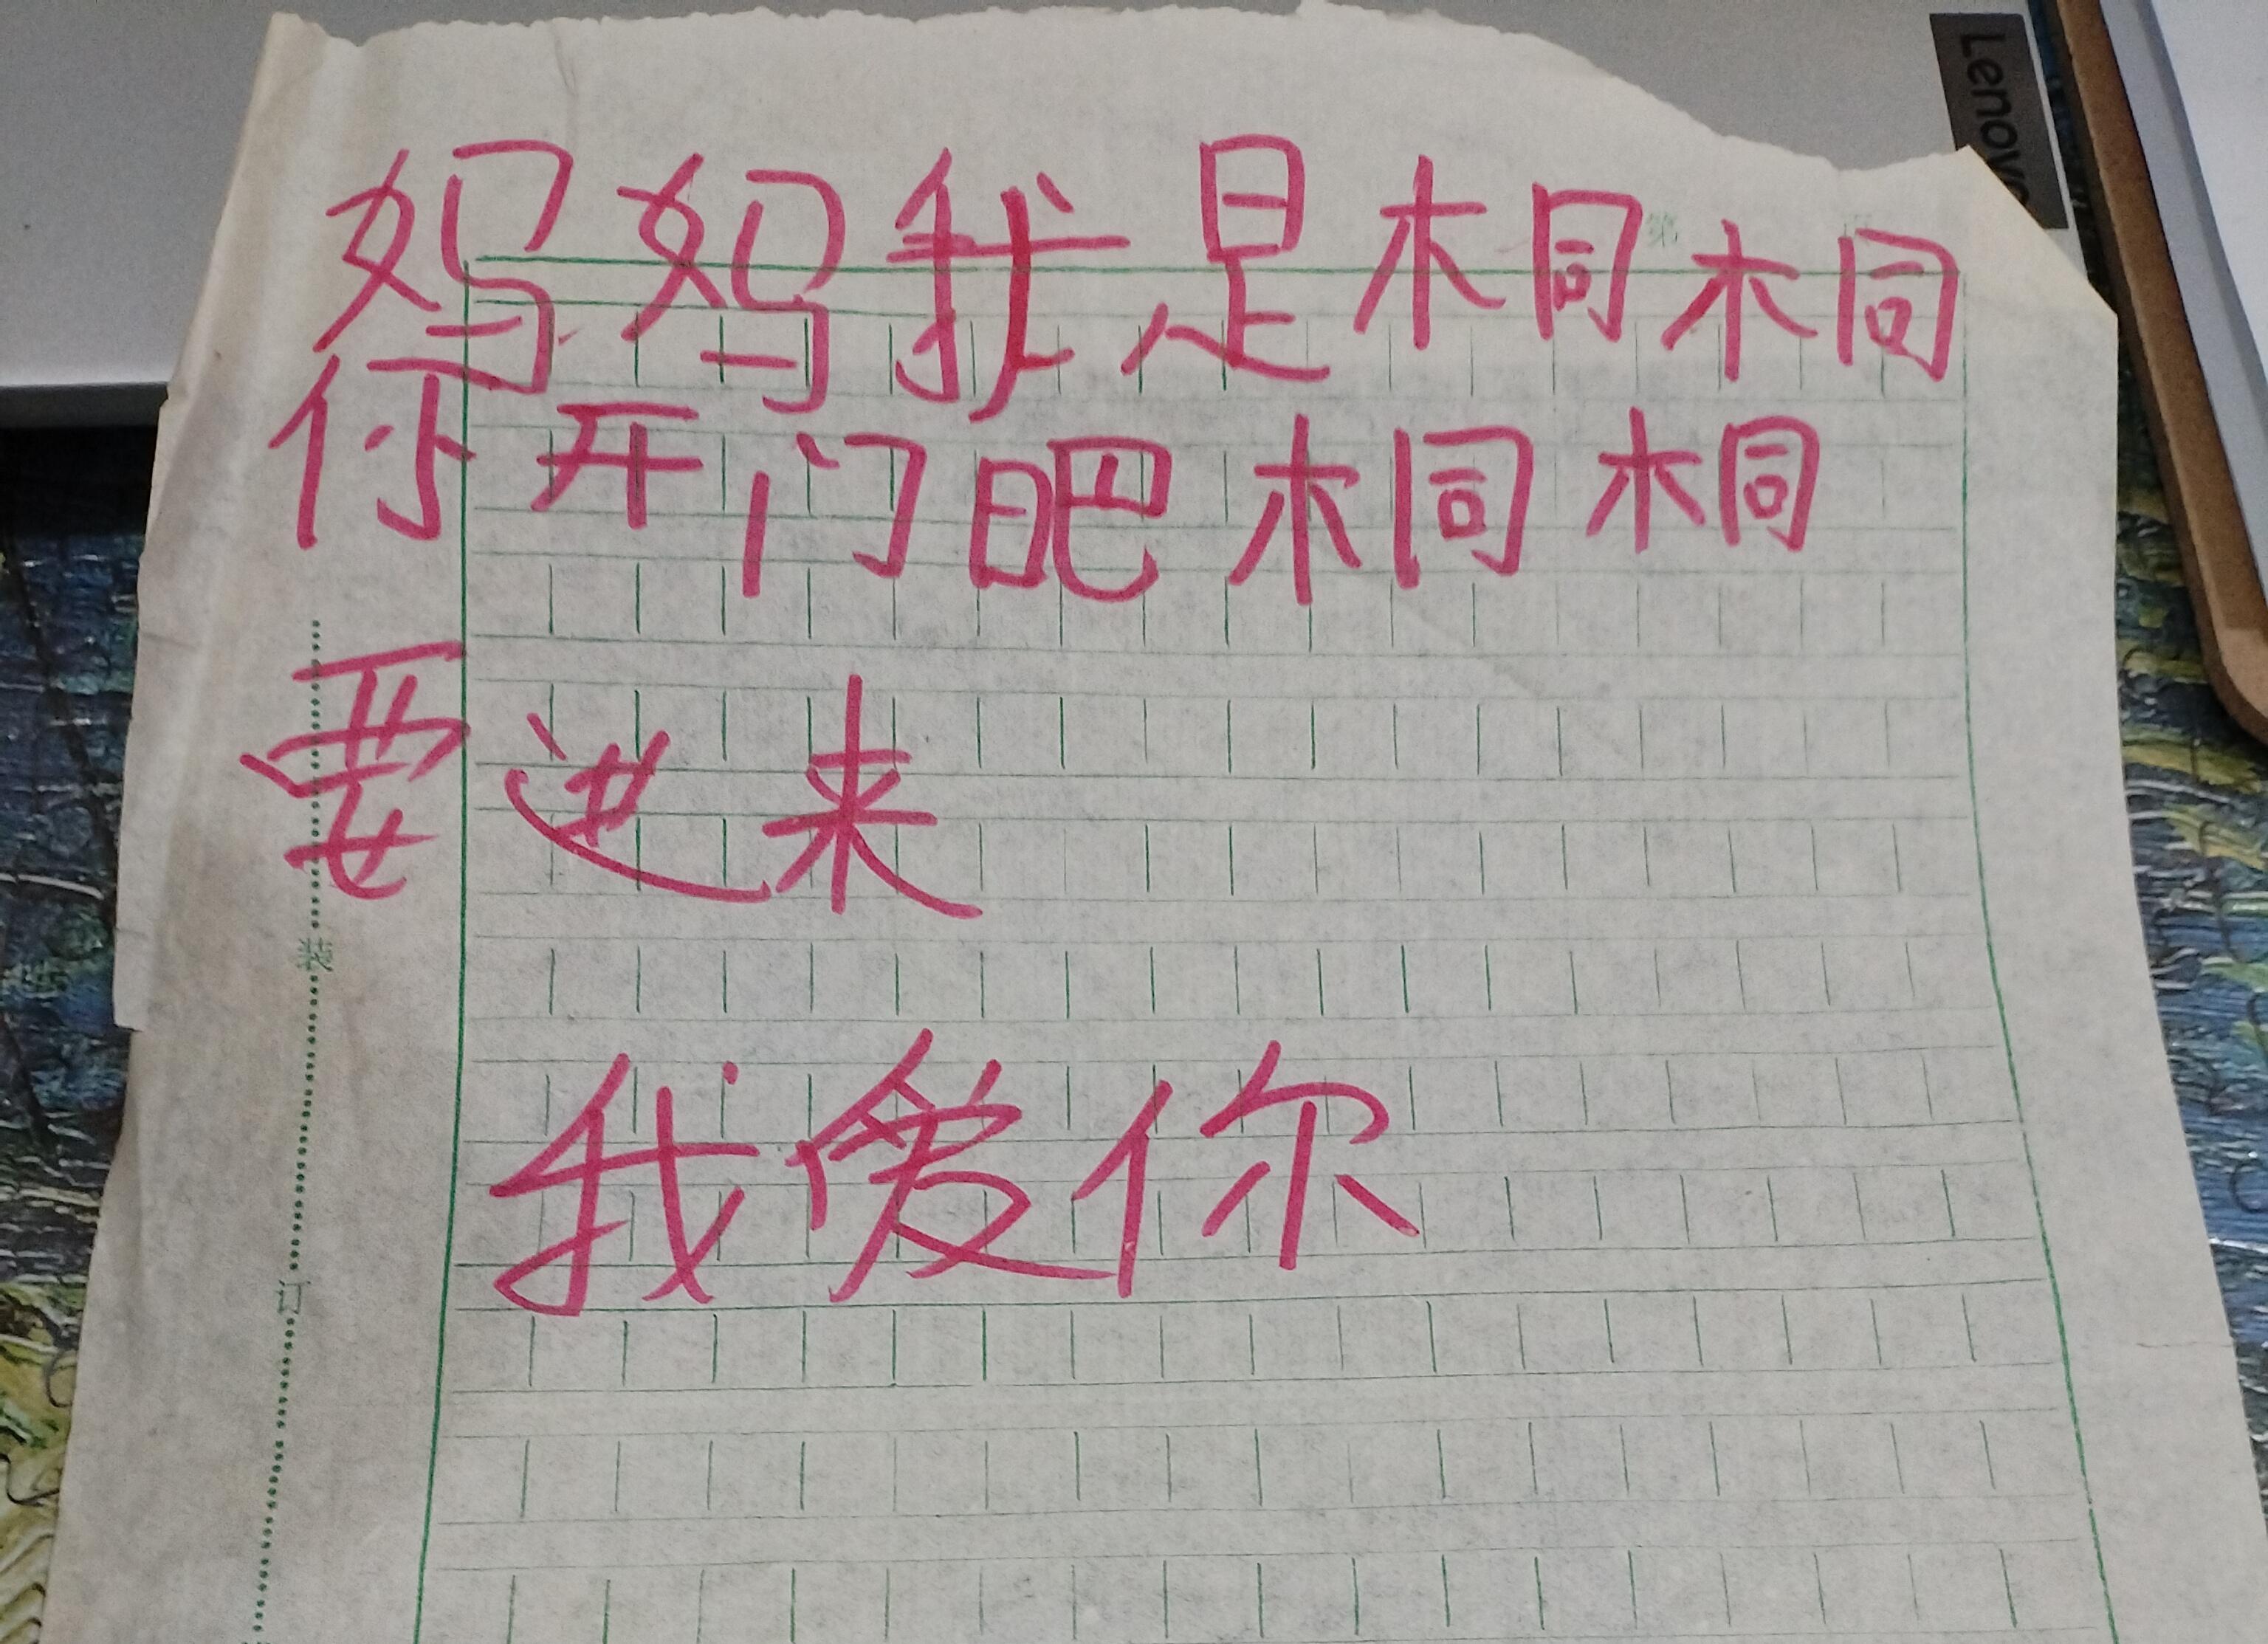 Lenovo
第 页
妈妈我是桐桐
你开门吧桐桐
要进来
我爱你
装
订